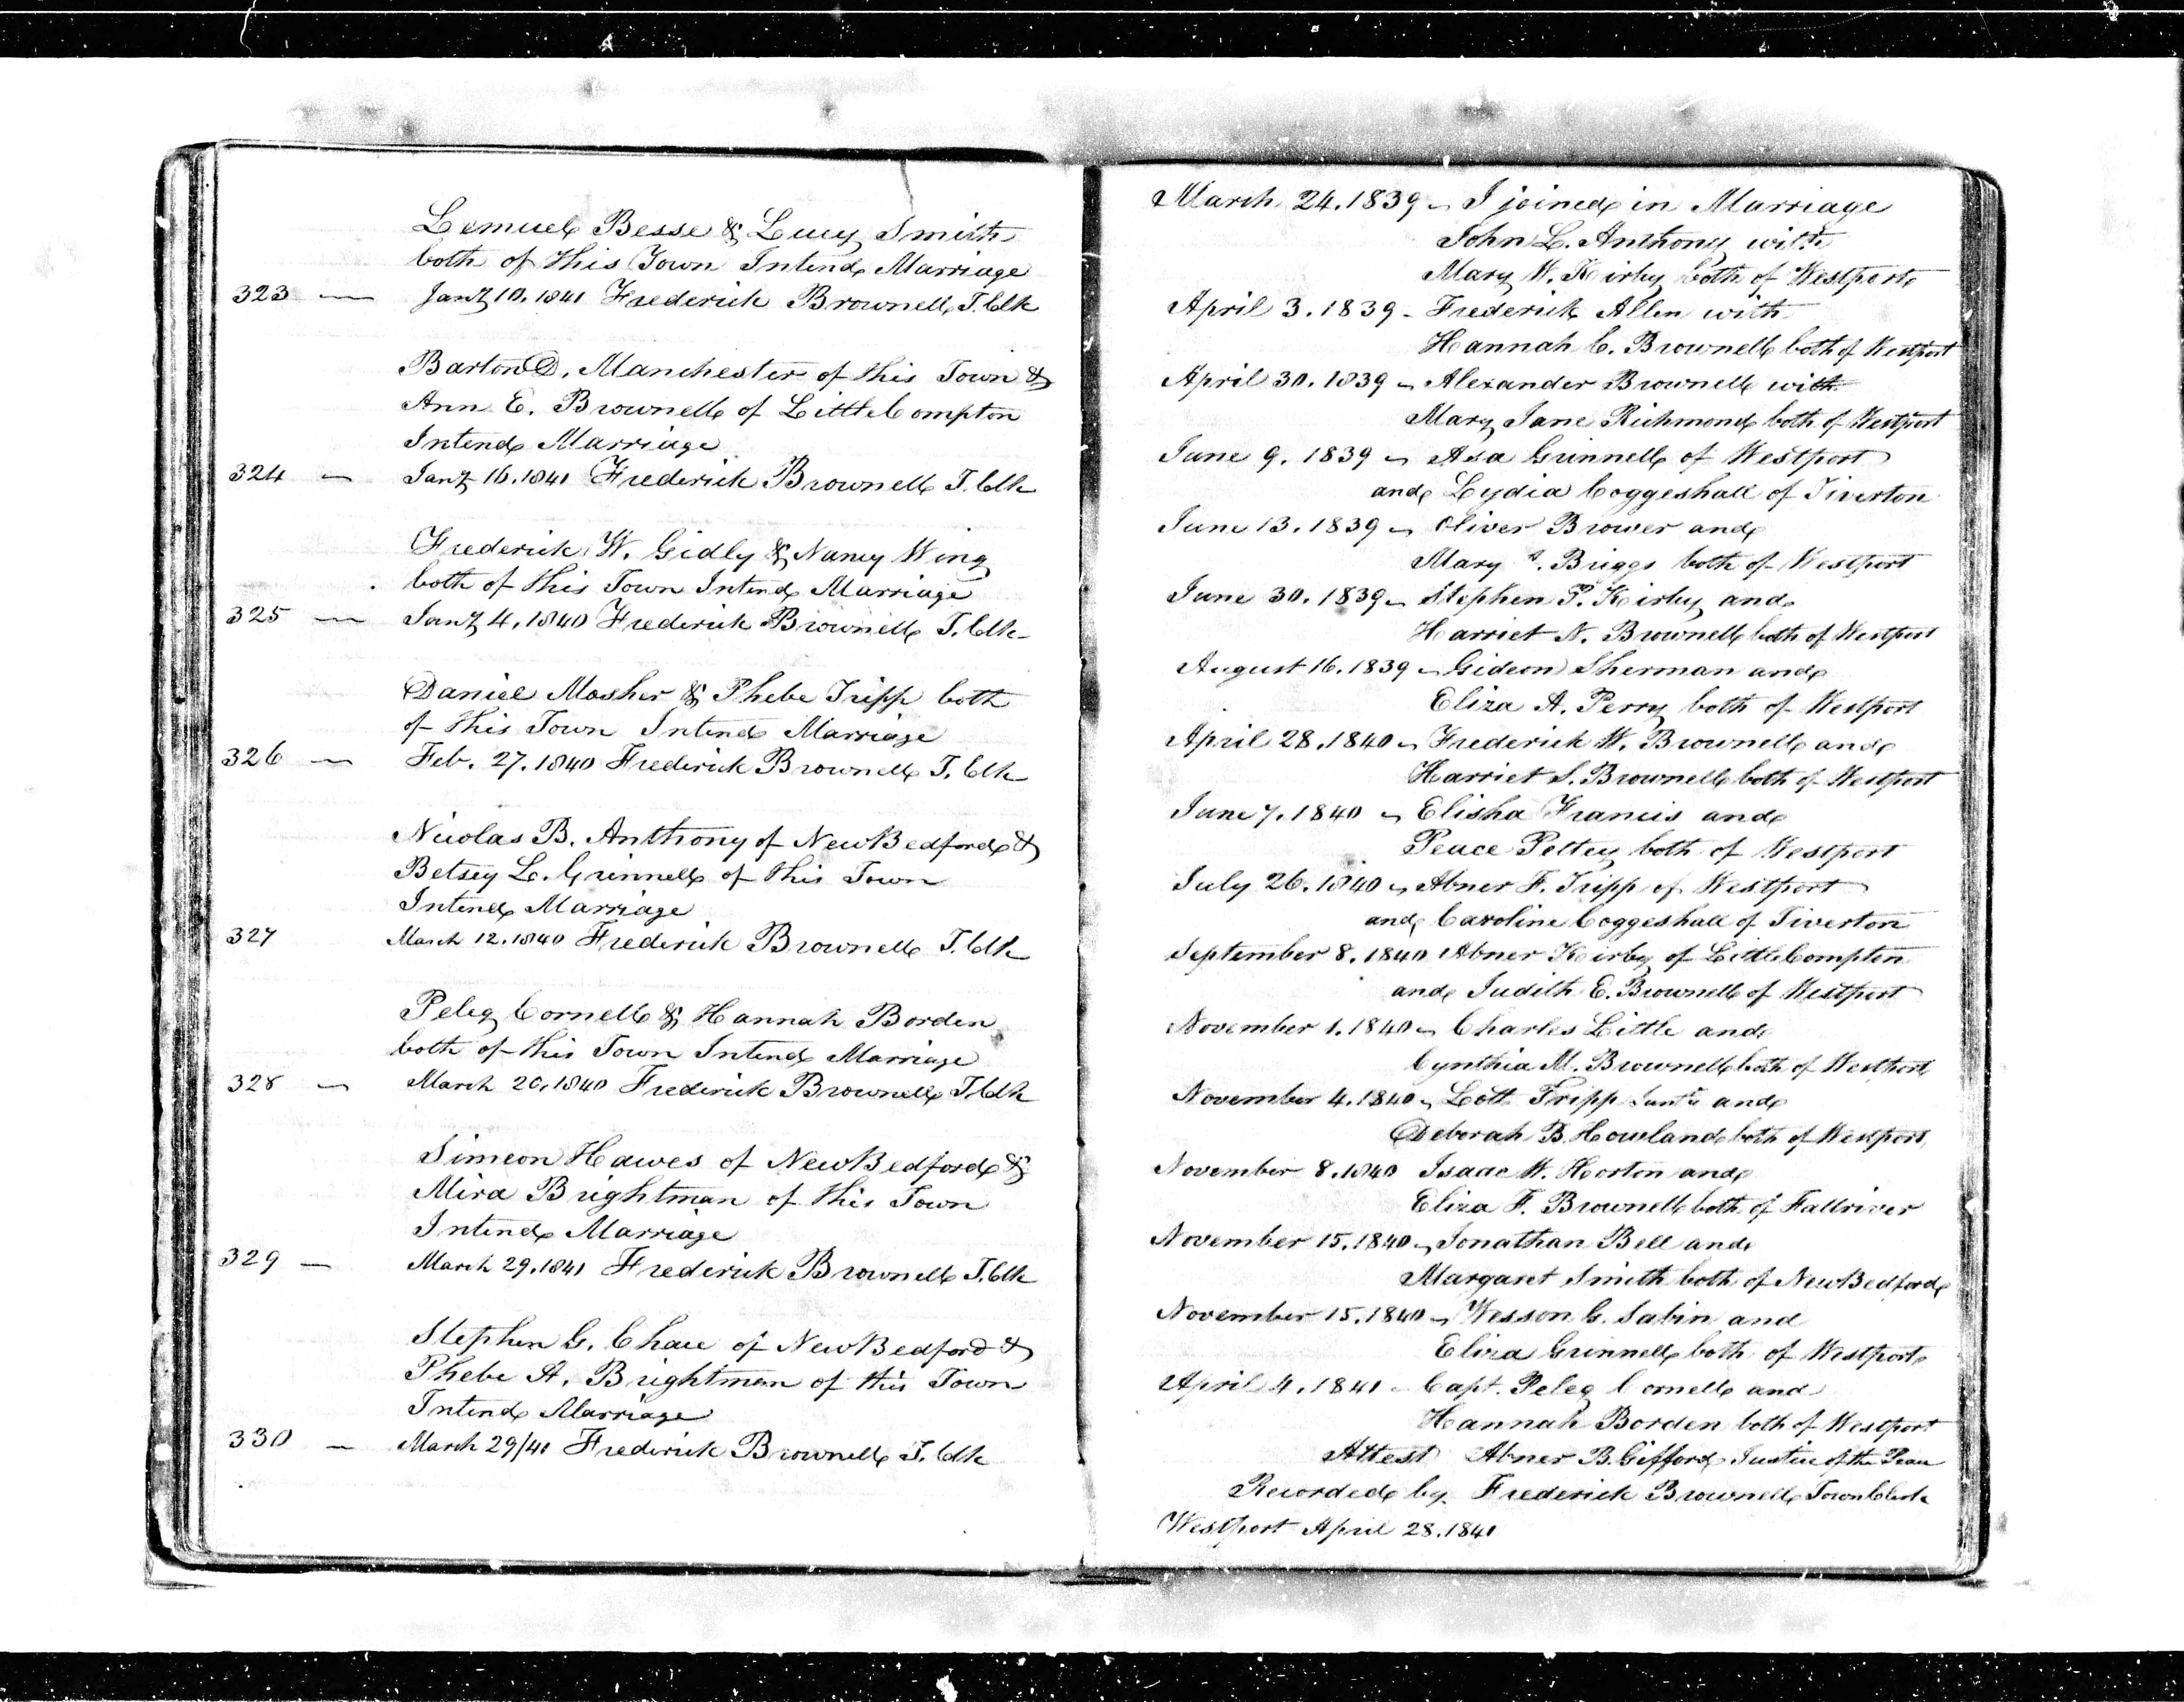 Lemuel Besse & Lucy Smith
both of this Town Intend Marriage
323 — Jany 10. 1841 Frederick Brownell T. Clk
Barton D. Manchester of this Town &
Ann E. Brownell of Little Compton
Intend Marriage
324 — Jany 16. 1841 Frederick Brownell T. Clk
Frederick W. Gidly & Nancy Wing
both of this Town Intend Marriage
325 — Jany 4. 1840 Frederick Brownell T. Clk
Daniel Mosher & Phebe Tripp both
of this Town Intend Marriage
326 — Feb. 27. 1840 Frederick Brownell T. Clk
Nicolas B. Anthony of New Bedford &
Betsey L. Grinnell of this Town
Intend Marriage
327 March 12. 1840 Frederick Brownell T. Clk
Peleg Cornell & Hannah Borden
both of this Town Intend Marriage
328 — March 20. 1840 Frederick Brownell T. Clk
Simeon Hawes of New Bedford &
Mira Brightman of this Town
Intend Marriage
329 — March 29. 1841 Frederick Brownell T. Clk
Stephen G. Chace of New Bedford &
Phebe A. Brightman of this Town
Intend Marriage
330 — March 29/41 Frederick Brownell T. Clk
March 24. 1839 - I joined in Marriage
John L. Anthony with
Mary W. Kirby both of Westport
April 3. 1839 - Frederick Allen with
Hannah C. Brownell both of Westport
April 30. 1839 - Alexander Brownell with
Mary Jane Richmond both of Westport
June 9. 1839 - Asa Grinnell of Westport
and Lydia Coggeshall of Tiverton
June 13. 1839 - Oliver Brower and
Mary Briggs both of Westport
June 30. 1839 - Stephen P. Kirby and
Harriet N. Brownell both of Westport
August 16. 1839 - Gideon Sherman and
Eliza A. Perry both of Westport
April 28. 1840 - Frederick W. Brownell and
Harriet S. Brownell both of Westport
June 7. 1840 - Elisha Francis and
Peace Pettey both of Westport
July 26. 1840 - Abner F. Tripp of Westport
and Caroline Coggeshall of Tiverton
September 8. 1840 Abner Kirby of Little Compton
and Judith E. Brownell of Westport
November 1. 1840 - Charles Little and
Cynthia M. Brownell both of Westport
November 4. 1840 - Lott Tripp and
Deborah B. Howland both of Westport
November 8. 1840 Isaac W. Horton and
Eliza F. Brownell both of Fallriver
November 15. 1840 - Jonathan Bell and
Margaret Smith both of New Bedford
November 15. 1840 - Wesson G. Sabin and
Eliza Grinnell both of Westport
April 4. 1841 - Capt. Peleg Cornell and
Hannah Borden both of Westport
Attest Abner B. Gifford Justice of the Peace
Recorded by Frederick Brownell Town Clerk
Westport April 28. 1841